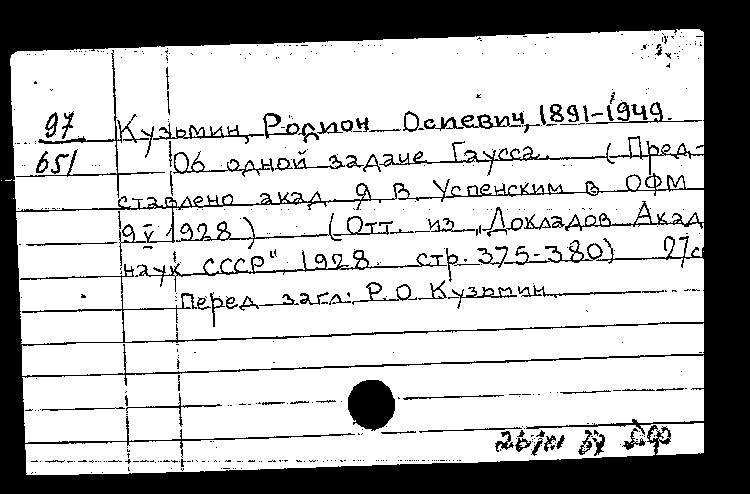 97 Кузьмин, Родион Осиевич, 1891-1949.
651 Об одной задаче Гаусса. (Пред-
ставлено акад. Я. В. Успенским в ОФМ
9 V 1928) (Отт. из „Докладов Акад
наук СССР", 1928. стр. 375-380) 27см
Перед загл: Р. О. Кузьмин.